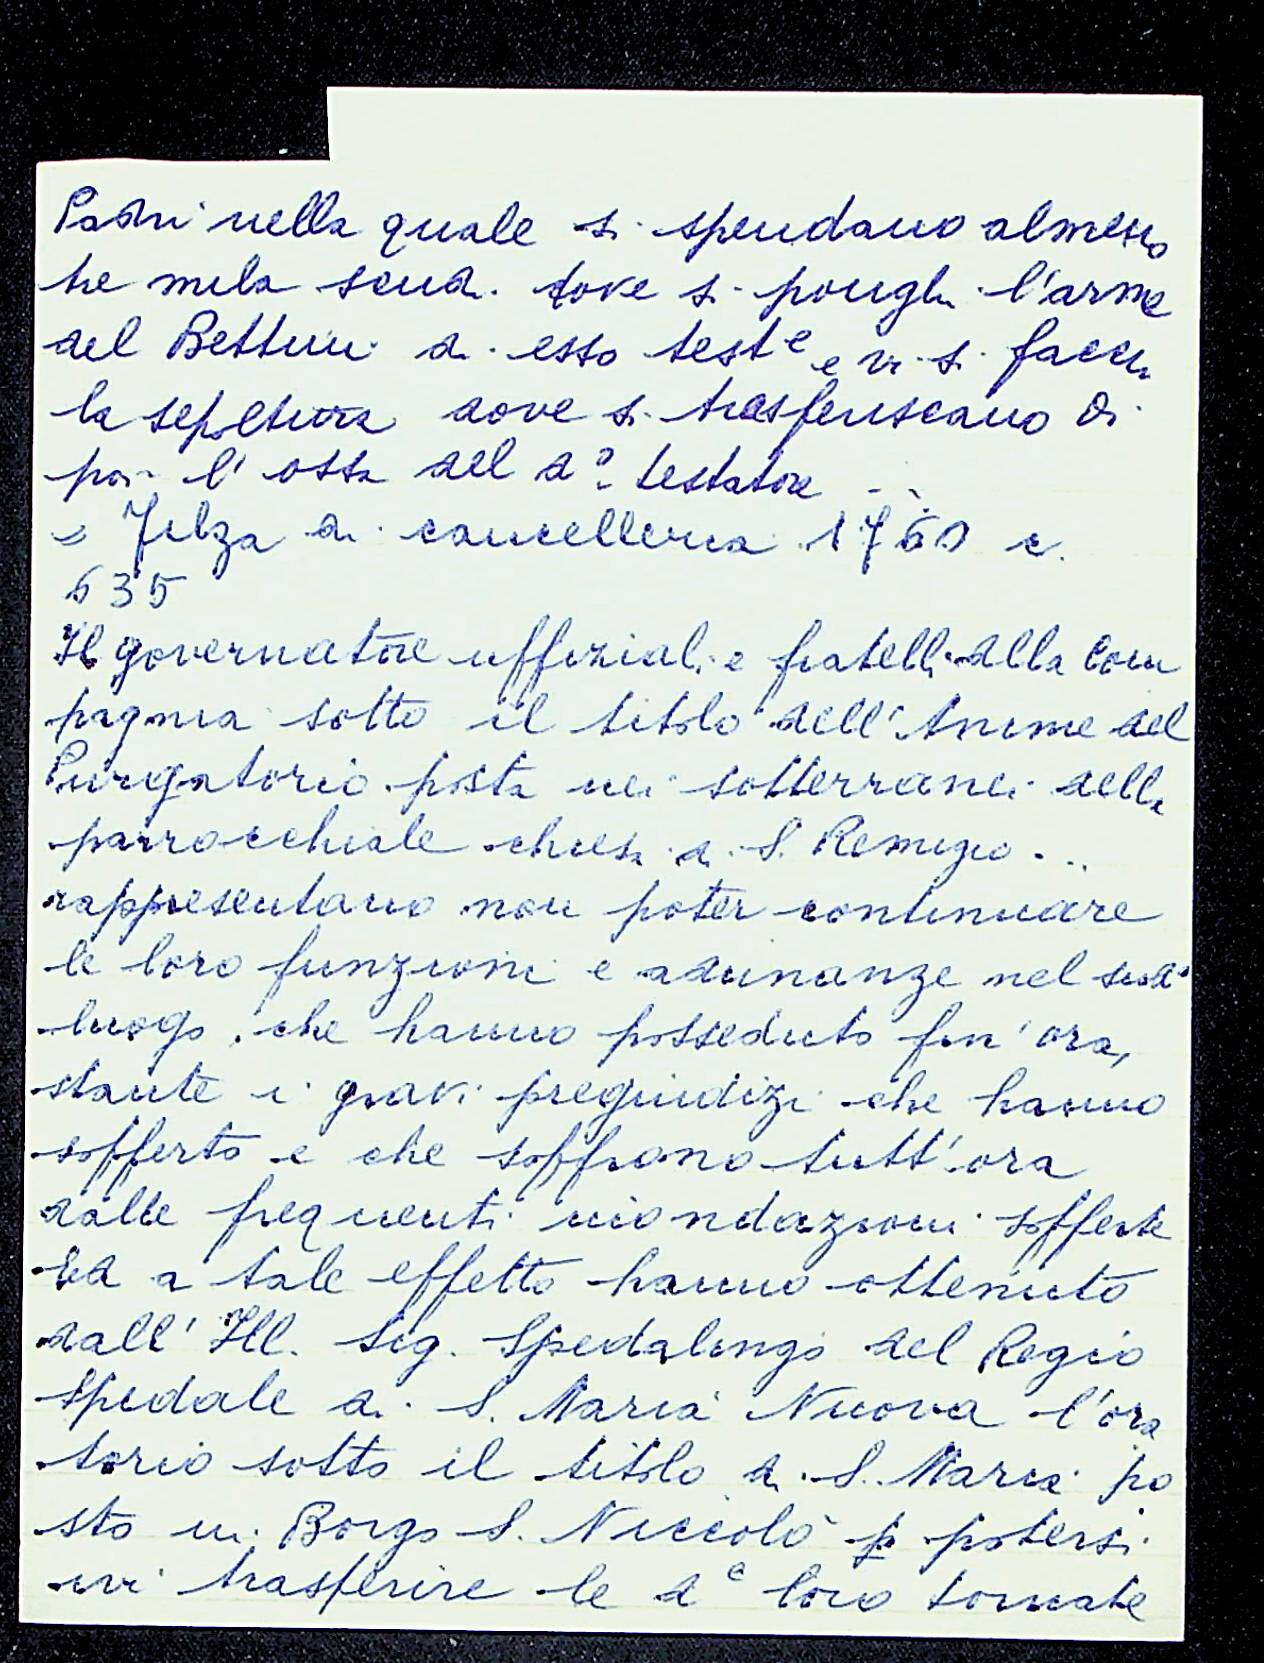 Padri nella quale si spendano almeno
tre mila scudi dove si ponghi l'arme
del Bettini di esso test.e e vi si facci
la sepoltura dove si trasferiscano di
poi l'ossa del d.o testatore ...
= Filza di cancelleria 1760 c.
635
Il governatore uffiziali e fratelli della Com
pagnia sotto il titolo dell'Anime del
Purgatorio posta nei sotterranei della
parrocchiale chiesa di S. Remigio ...
rappresentano non poter continuare
le loro funzioni e adunanze nel sud.o
luogo, che hanno posseduto fin'ora,
stante i gravi pregiudizi che hanno
sofferto e che soffrono tutt'ora
dalle frequenti inondazioni sofferte
Ed a tale effetto hanno ottenuto
dall'Ill. Sig. Spedalingo del Regio
Spedale di S. Maria Nuova l'ora
torio sotto il titolo di S. Maria po
sto in Borgo S. Niccolò p potersi
ivi trasferire le d.e loro tornate